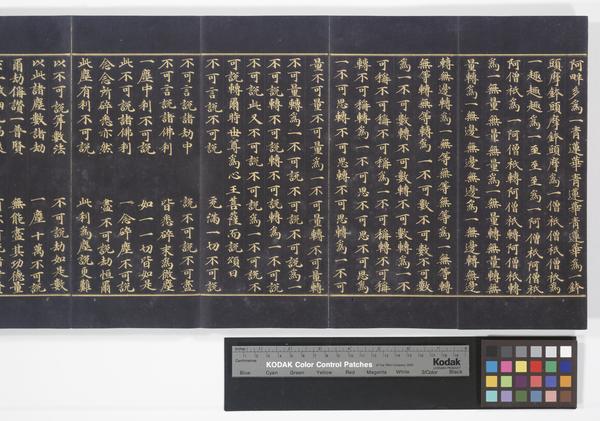 阿畔多為一青蓮華青蓮華青蓮華為一鉢
頭摩鉢頭摩鉢頭摩為一僧祇僧祇僧祇為
一趣趣趣為一至至至為一阿僧祇阿僧祇
阿僧祇為一阿僧祇轉阿僧祇轉阿僧祇轉
為一無量無量無量為一無量轉無量轉無
量轉為一無邊無邊無邊為一無邊轉無邊
轉無邊轉為一無等無等無等為一無等轉
無等轉無等轉為一不可數不可數不可數
為一不可數轉不可數轉不可數轉為一不
可稱不可稱不可稱為一不可稱轉不可稱
轉不可稱轉為一不可思不可思不可思為
一不可思轉不可思轉不可思轉為一不可
量不可量不可量為一不可量轉不可量轉
不可量轉為一不可說不可說不可說為一
不可說轉不可說轉不可說轉為一不可說
不可說此又不可說不可說為一不可說不
可說轉爾時世尊為心王菩薩而說頌曰
不可言說不可說 充滿一切不可說
不可言說諸劫中 說不可說不可盡
不可言說諸佛剎 皆悉碎末為微塵
一塵中剎不可說 如一一切皆如是
此不可說諸佛剎 一念碎塵不可說
念念所碎悉亦然 盡不可說劫恒爾
此塵有剎不可說 此剎為塵說更難
以不可說算數法 不可說劫如是數
以此諸塵數諸劫 一塵十萬不可說
爾劫稱讚一普賢 無能盡其功德量
KODAK Color Control Patches
Kodak
Blue Cyan Green Yellow Red Magenta White 3/Color Black